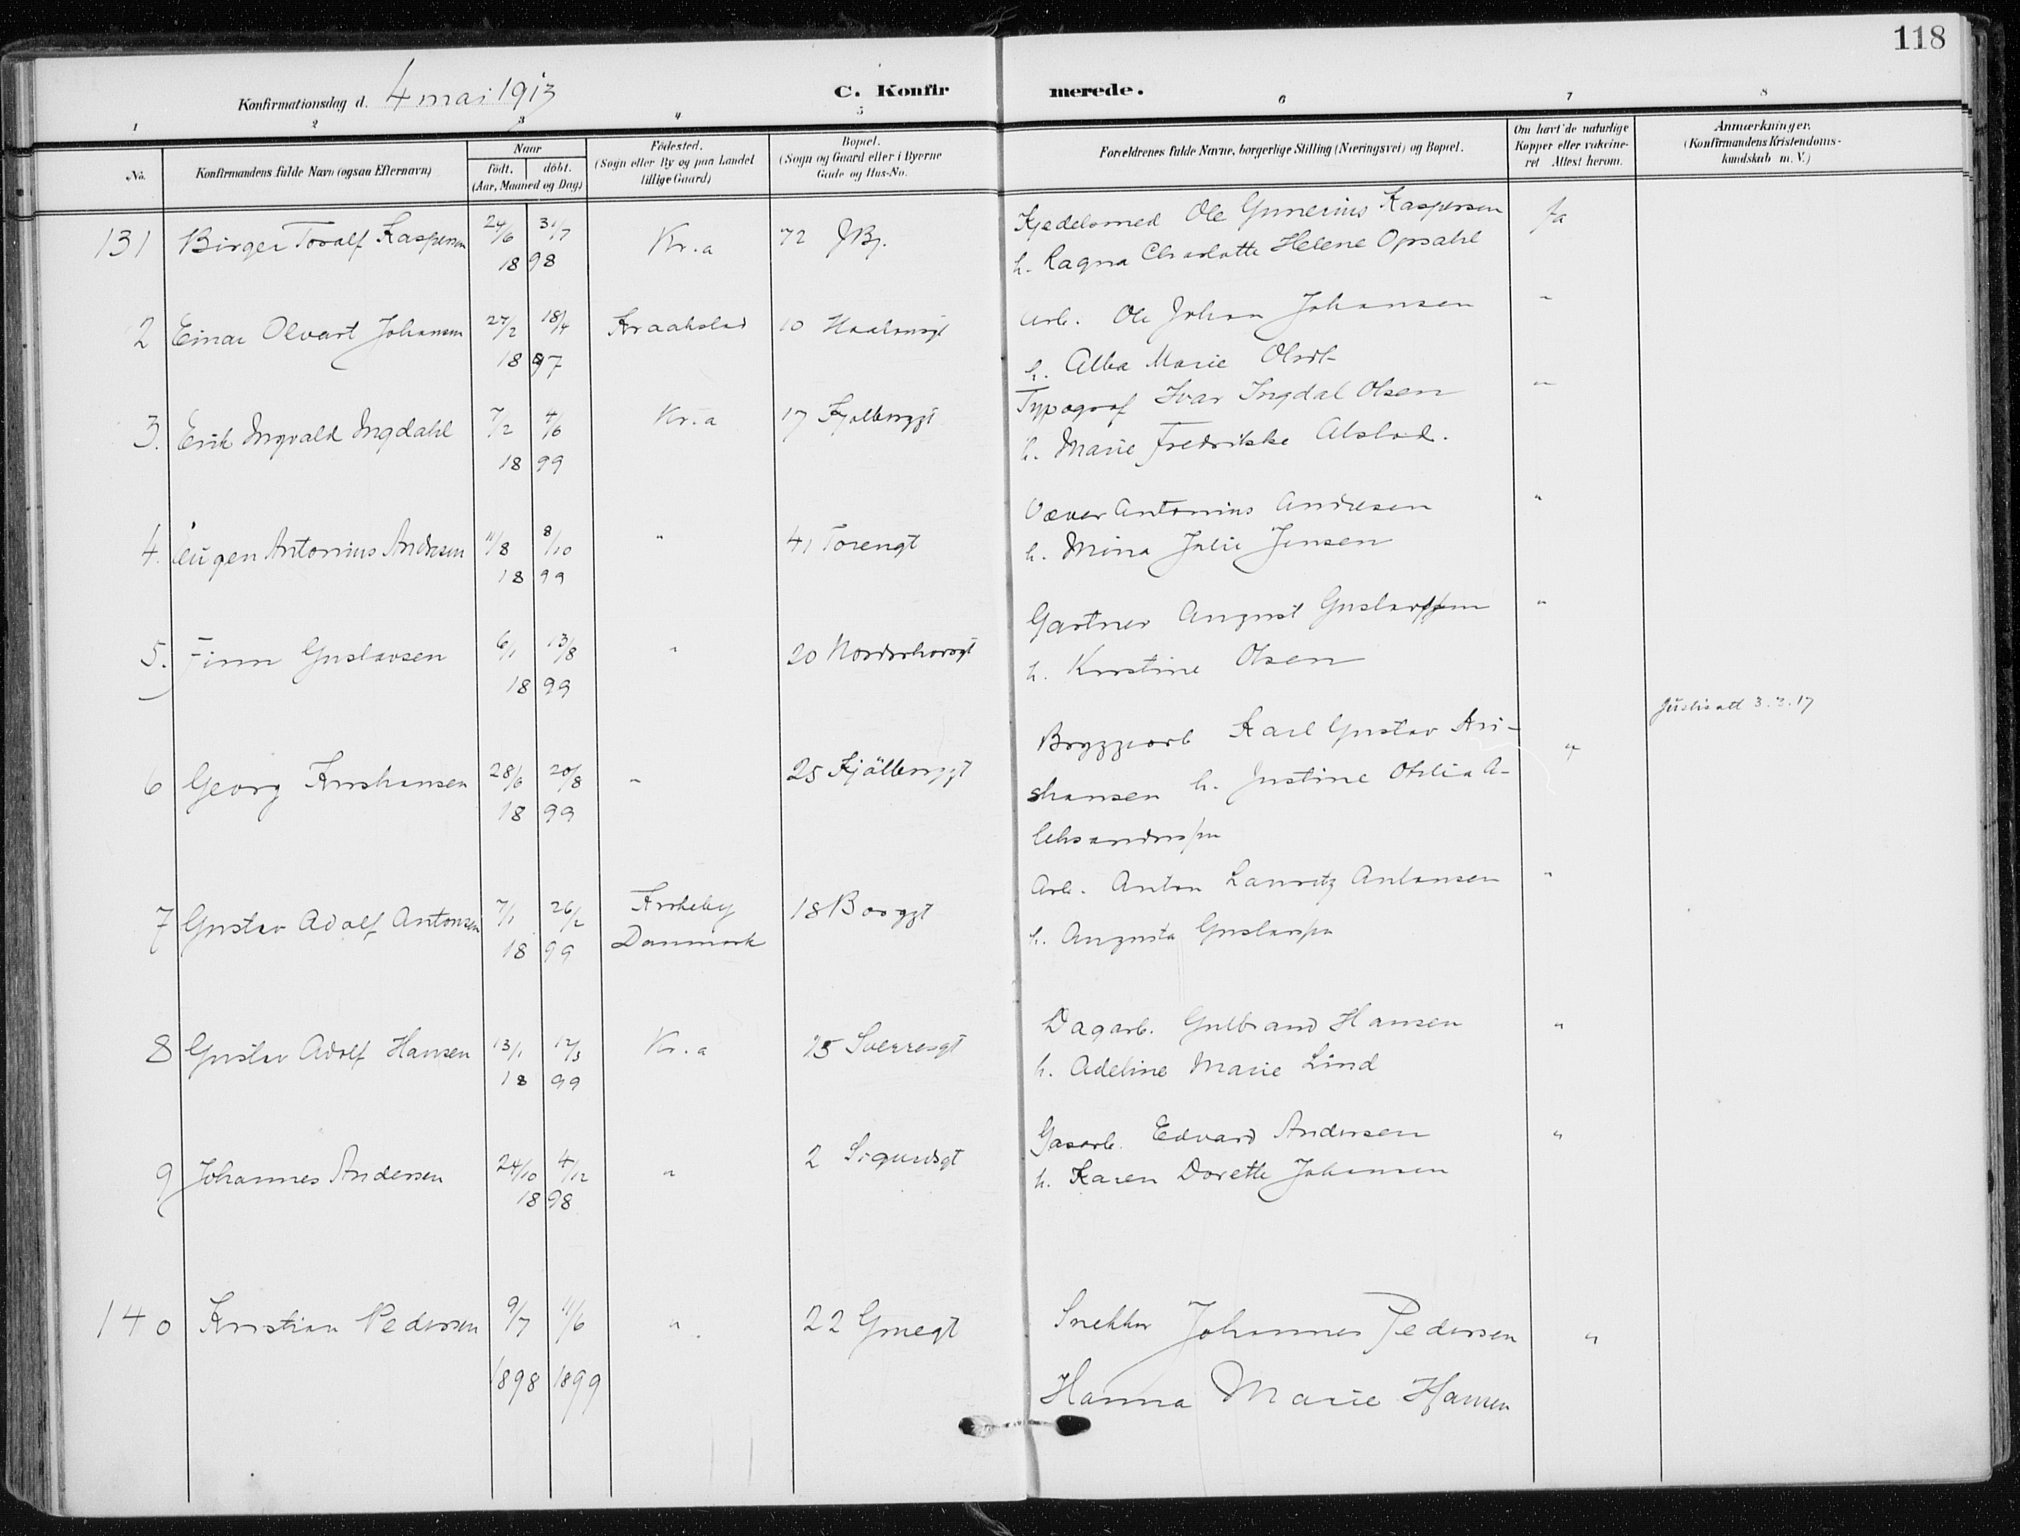 118
Konfirmationsdag d. 4 mai 1913
C. Konfirmerede.
1 2 3 4 5 6 7 8
No.
Konfirmandens fulde Navn (ogsaa Efternavn)
Naar
födt. döbt.
(Aar, Maaned og Dag)
Födested.
(Sogn eller By og paa Landet
tillige Gaard)
Bopæl.
(Sogn og Gaard eller i Byerne
Gade og Hus-No.
Forældrenes fulde Navne, borgerlige Stilling (Næringsvei) og Bopæl.
Om havt de naturlige
Kopper eller vakcine-
ret Attest herom.
Anmærkninger.
(Konfirmandens Kristendoms-
kundskab m. V.)
131 Birger Toralf Kaspersen 24/6 31/7 Kr.a 72 Kjedelsmed Ole Gunerius Kaspersen Ja
18 98 h. Ragna Charlotte Helene Opsahl
2 Einar Olvart Johansen 27/2 18/4 Kraakstad 10 Arb. Ole Johan Johansen "
18 97 h. Alba Marie Olsdt
3. Erik Ingvald Ingdahl 7/2 4/6 Kr.a 17 Kjølberggt Typograf Ivar Ingdal Olsen "
18 99 h. Marie Fredrikke Alstad.
4. Eugen Antonius Andresen 11/8 8/10 " 41 Torengt Væver Antonius Andresen "
18 99 h. Mina Julie Jensen
5. Finn Gustavsen 6/1 13/8 " 20 Norderhovsgt Gartner August Gustavssen "
18 99 h. Kristine Olsen
6 Georg Kristiansen 28/6 20/8 " 25 Kjölberggt Bryggearb Karl Gustav Kri- " 3.3.17
18 99 stiansen h. Justine Otilia A-
leksandersen
7 Gustav Adolf Antonsen 7/1 26/2 Kirkeby 18 Borggt Arb. Anton Lauritz Antonsen "
18 99 Danmark h. Augusta Gustavsen
8 Gustav Adolf Hansen 13/1 12/3 Kr.a 25 Sverresgt Dagarb. Gulbrand Hansen "
18 99 h. Adeline Marie Lind
9 Johannes Andersen 24/10 4/12 " 2 Sigurdsgt Gasarb. Edvard Andersen "
18 98 h. Karen Dorette Johansen
140 Kristian Pedersen 9/7 11/6 " 22 Gruegt Snekker Johannes Pedersen "
1898 1899 Hanna Marie Hansen